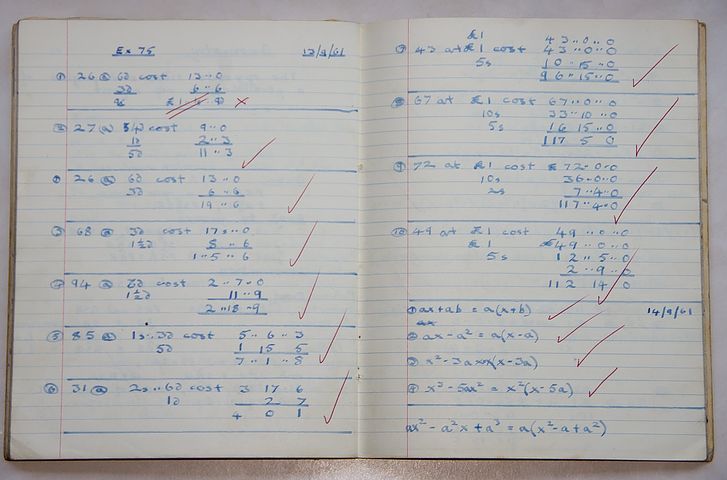 Ex 75 13/9/61
① 26 @ 6d cost 13..0
3d 6..6
② 27 @ 4d cost 9..0
1d 2..3
5d 11..3
① 26 @ 6d cost 13..0
3d 6..6
19..6
③ 68 @ 3d cost 17s..0
1½d 8..6
1..5..6
94 @ cost 2..7..0
1½d 11..9
2..18..9
⑤ 85 @ 1s..3d cost 5..6..3
5d 1 15 5
7..1..8
⑥ 31 @ 2s..6d cost 3 17 6
1d 2 7
4 0 1
£1 43..0..0
⑦ 43 at £1 cost 43..0..0
5s 10..15..0
96..15..0
⑧ 67 at £1 cost 67..0..0
10s 33..10..0
5s 16 15..0
117 5 0
⑨ 72 at £1 cost £72..0..0
10s 36..0..0
2s 7..4..0
117..4..0
⑩ 49 at £1 cost 49..0..0
£1 49..0..0
5s 12..5..0
2..9..0
112 14 0
① ax+ab = a(x+b) 14/9/61
② ax-a² = a(x-a)
③ x²-3a (x-3a)
④ x³-5ax² = x²(x-5a)
ax²-a²x+a³ = a(x²-a+a²)